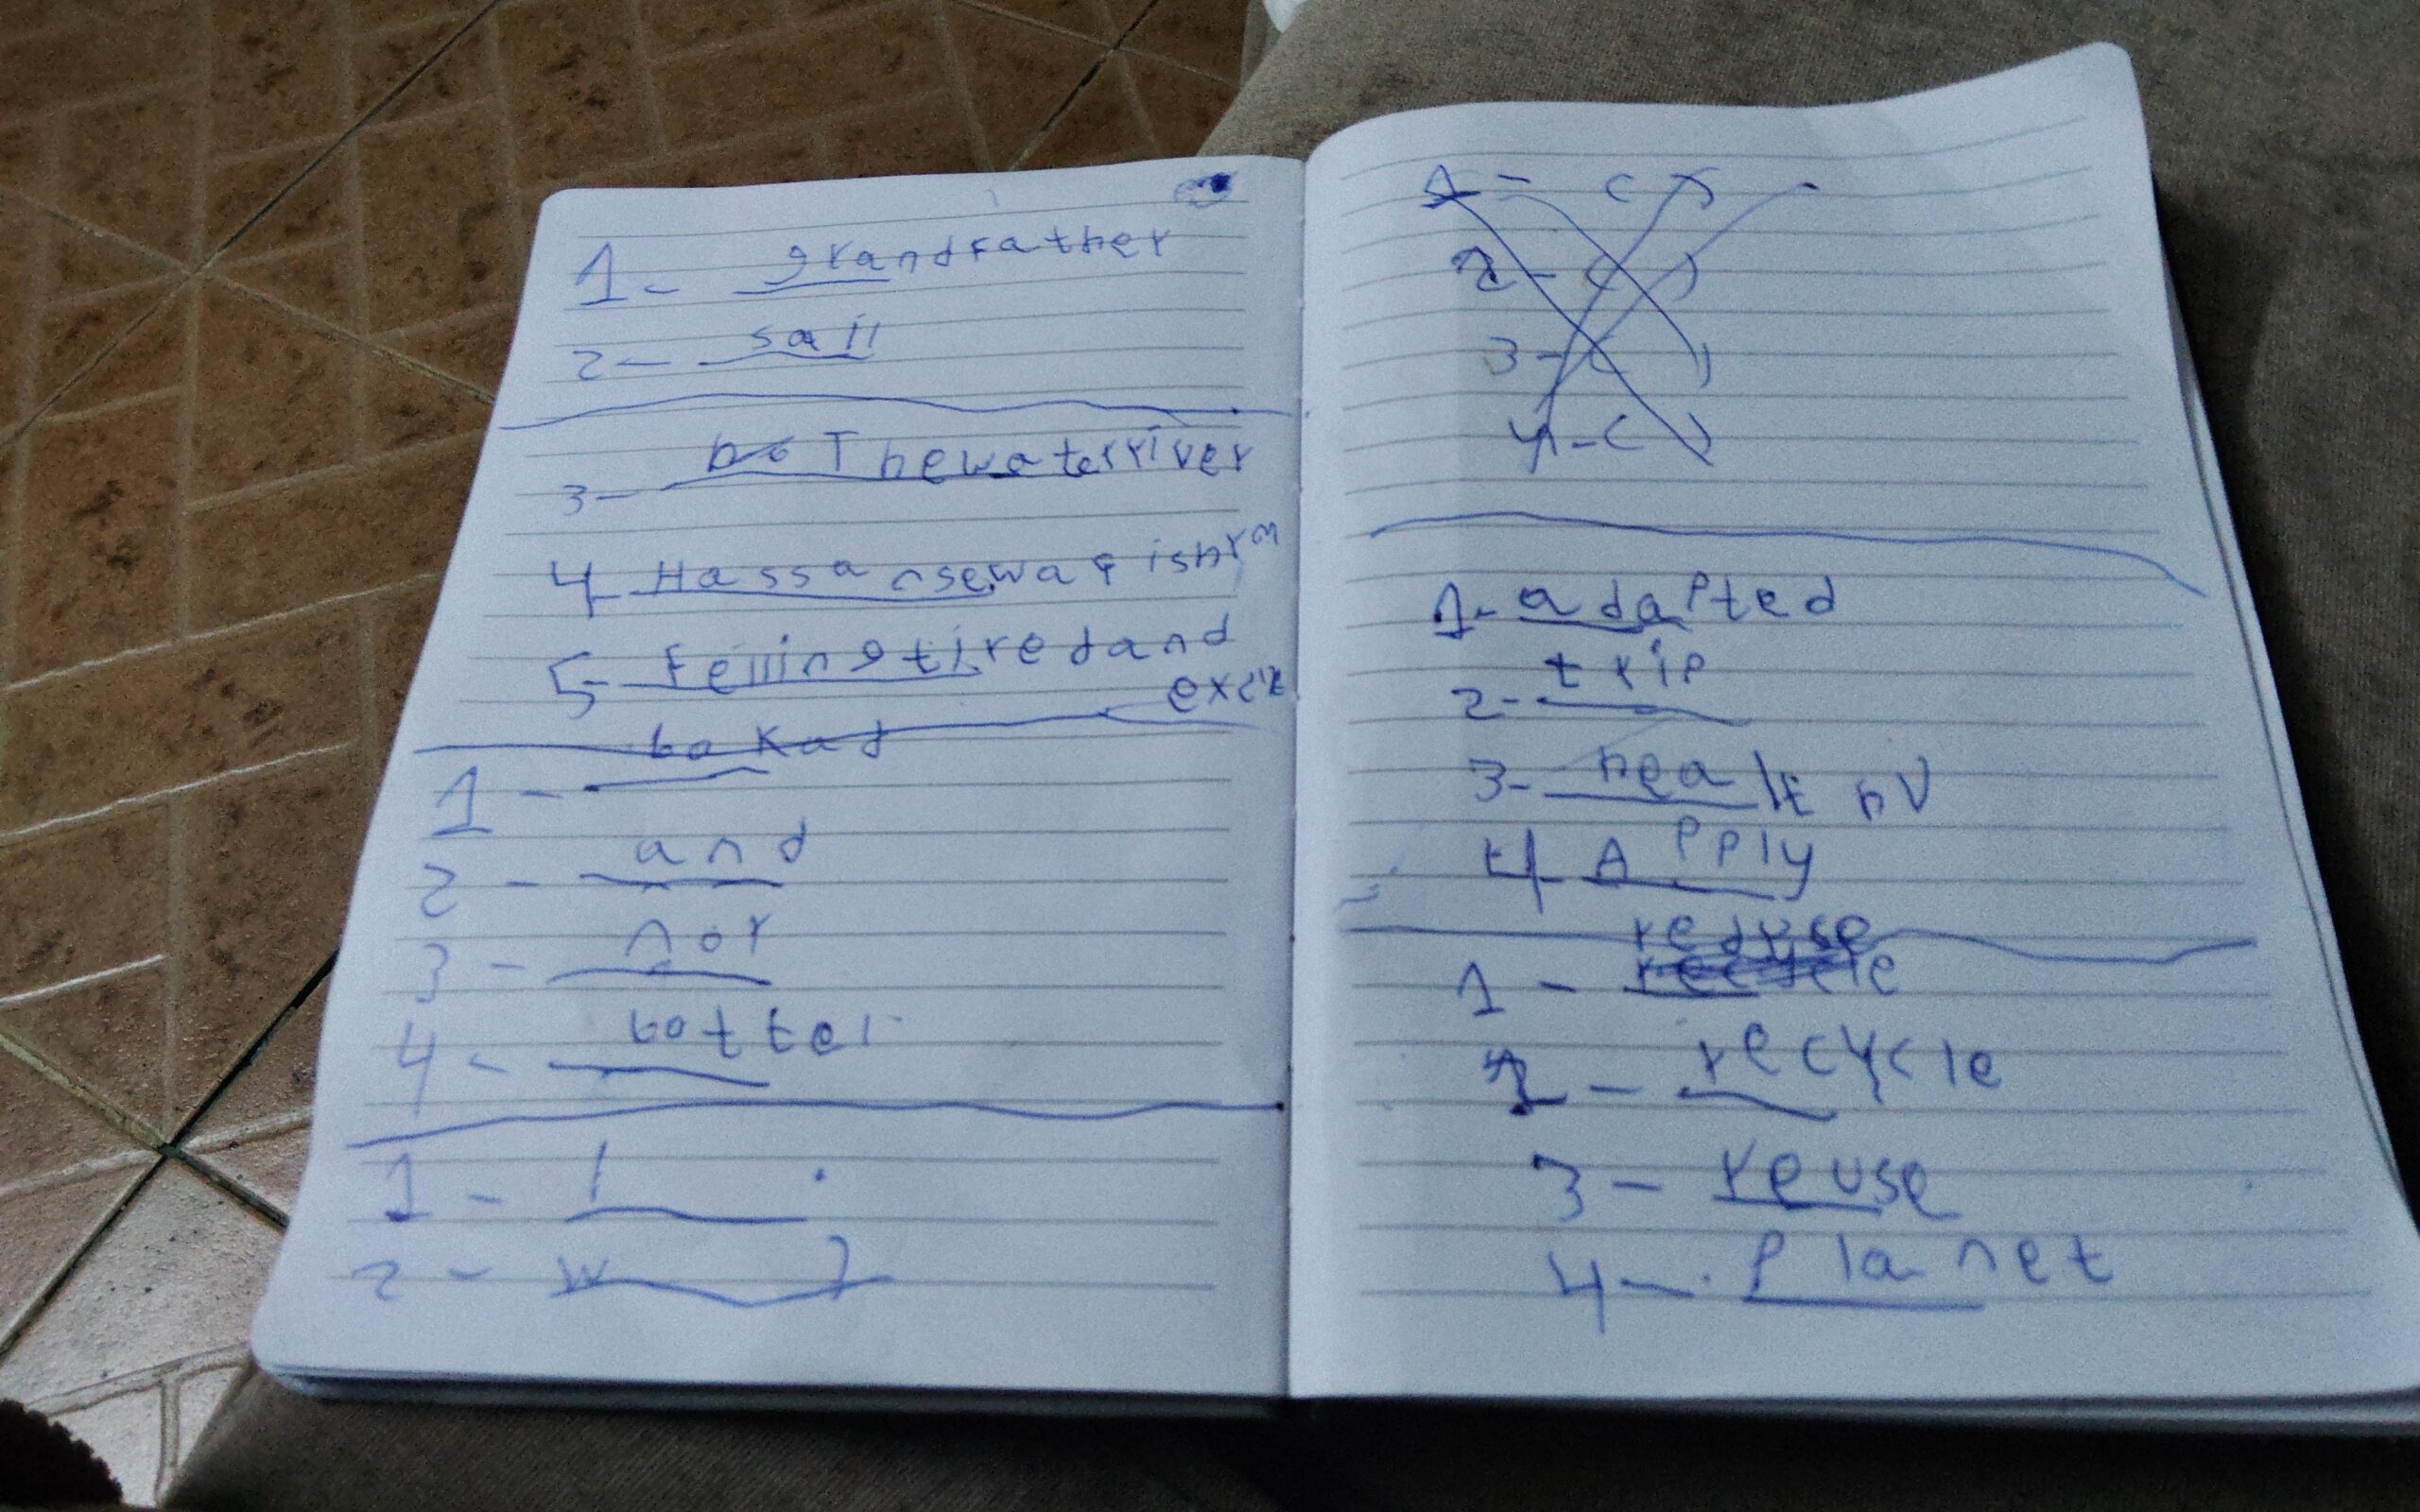 1- grandfather
2- sail
3- The water river
4- Hassan
5- Felling tired and
1- bakad
2- and
3- nor
4- bottel
1- I .
2- W ?
1- ( )
2- ( )
3- ( )
4- ( )
1- adapted
2- trip
3- healthy
4- Apply
reduse
1- recycle
2- recycle
3- reuse
4- planet